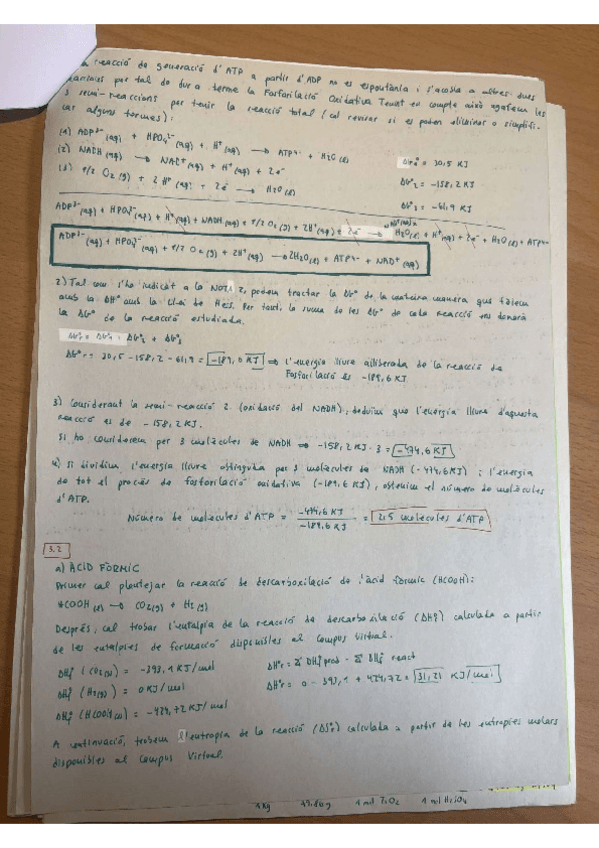 reacció de generació d'ATP a partir d'ADP no és espontània i s'acobla a altres dues
per tal de dur a terme la Fosforilació Oxidativa. Tenint en compte això agafem les
3 semi-reaccions per tenir la reacció total (cal revisar si es poden eliminar o simplifi-
car alguns termes):
(1) ADP³⁻(aq) + HPO₄²⁻(aq) + H⁺(aq) → ATP⁴⁻ + H₂O(l) ΔG°₁ = 30,5 KJ
(2) NADH(aq) → NAD⁺(aq) + H⁺(aq) + 2e⁻ ΔG°₂ = -158,2 KJ
(3) 1/2 O₂(g) + 2H⁺(aq) + 2e⁻ → H₂O(l) ΔG°₃ = -61,9 KJ
ADP³⁻(aq) + HPO₄²⁻(aq) + H⁺(aq) + NADH(aq) + 1/2 O₂(g) + 2H⁺(aq) + 2e⁻ → NAD⁺(aq) + H₂O(l) + H⁺(aq) + 2e⁻ + H₂O(l) + ATP⁴⁻
ADP³⁻(aq) + HPO₄²⁻(aq) + 1/2 O₂(g) + 2H⁺(aq) → 2H₂O(l) + ATP⁴⁻ + NAD⁺(aq)
2) Tal com s'ha indicat a la NOTA 2, podem tractar la ΔG° de la mateixa manera que fèiem
amb la ΔH° amb la Llei de Hess. Per tant, la suma de les ΔG° de cada reacció ens donarà
la ΔG° de la reacció estudiada.
ΔG°r = ΔG°₁ + ΔG°₂ + ΔG°₃
ΔG°r = 30,5 - 158,2 - 61,9 = -189,6 KJ ⇒ L'energia lliure alliberada de la reacció de
Fosforilació és -189,6 KJ
3) Considerant la semi-reacció 2 (oxidació del NADH), deduïm que l'energia lliure d'aquesta
reacció és de -158,2 KJ.
Si ho considerem per 3 molècules de NADH ⇒ -158,2 KJ · 3 = -474,6 KJ
4) Si dividim l'energia lliure obtinguda per 3 molècules de NADH (-474,6 KJ) i l'energia
de tot el procés de fosforilació oxidativa (-189,6 KJ), obtenim el número de molècules
d'ATP.
Número de molècules d'ATP = -474,6 KJ / -189,6 KJ = 2,5 molècules d'ATP
3.2
a) ÀCID FÒRMIC
Primer cal plantejar la reacció de descarboxilació de l'àcid fòrmic (HCOOH):
HCOOH(l) → CO₂(g) + H₂(g)
Després, cal trobar l'entalpia de la reacció de descarboxilació (ΔH°r) calculada a partir
de les entalpies de formació disponibles al Campus Virtual.
ΔH°f (CO₂(g)) = -393,1 KJ/mol ΔH°r = Σ ΔH°f prod - Σ ΔH°f react
ΔH°f (H₂(g)) = 0 KJ/mol ΔH°r = 0 - 393,1 + 424,72 = 31,21 KJ/mol
ΔH°f (HCOOH(l)) = -424,72 KJ/mol
A continuació, trobem l'entropia de la reacció (ΔS°r) calculada a partir de les entropies molars
disponibles al Campus Virtual.